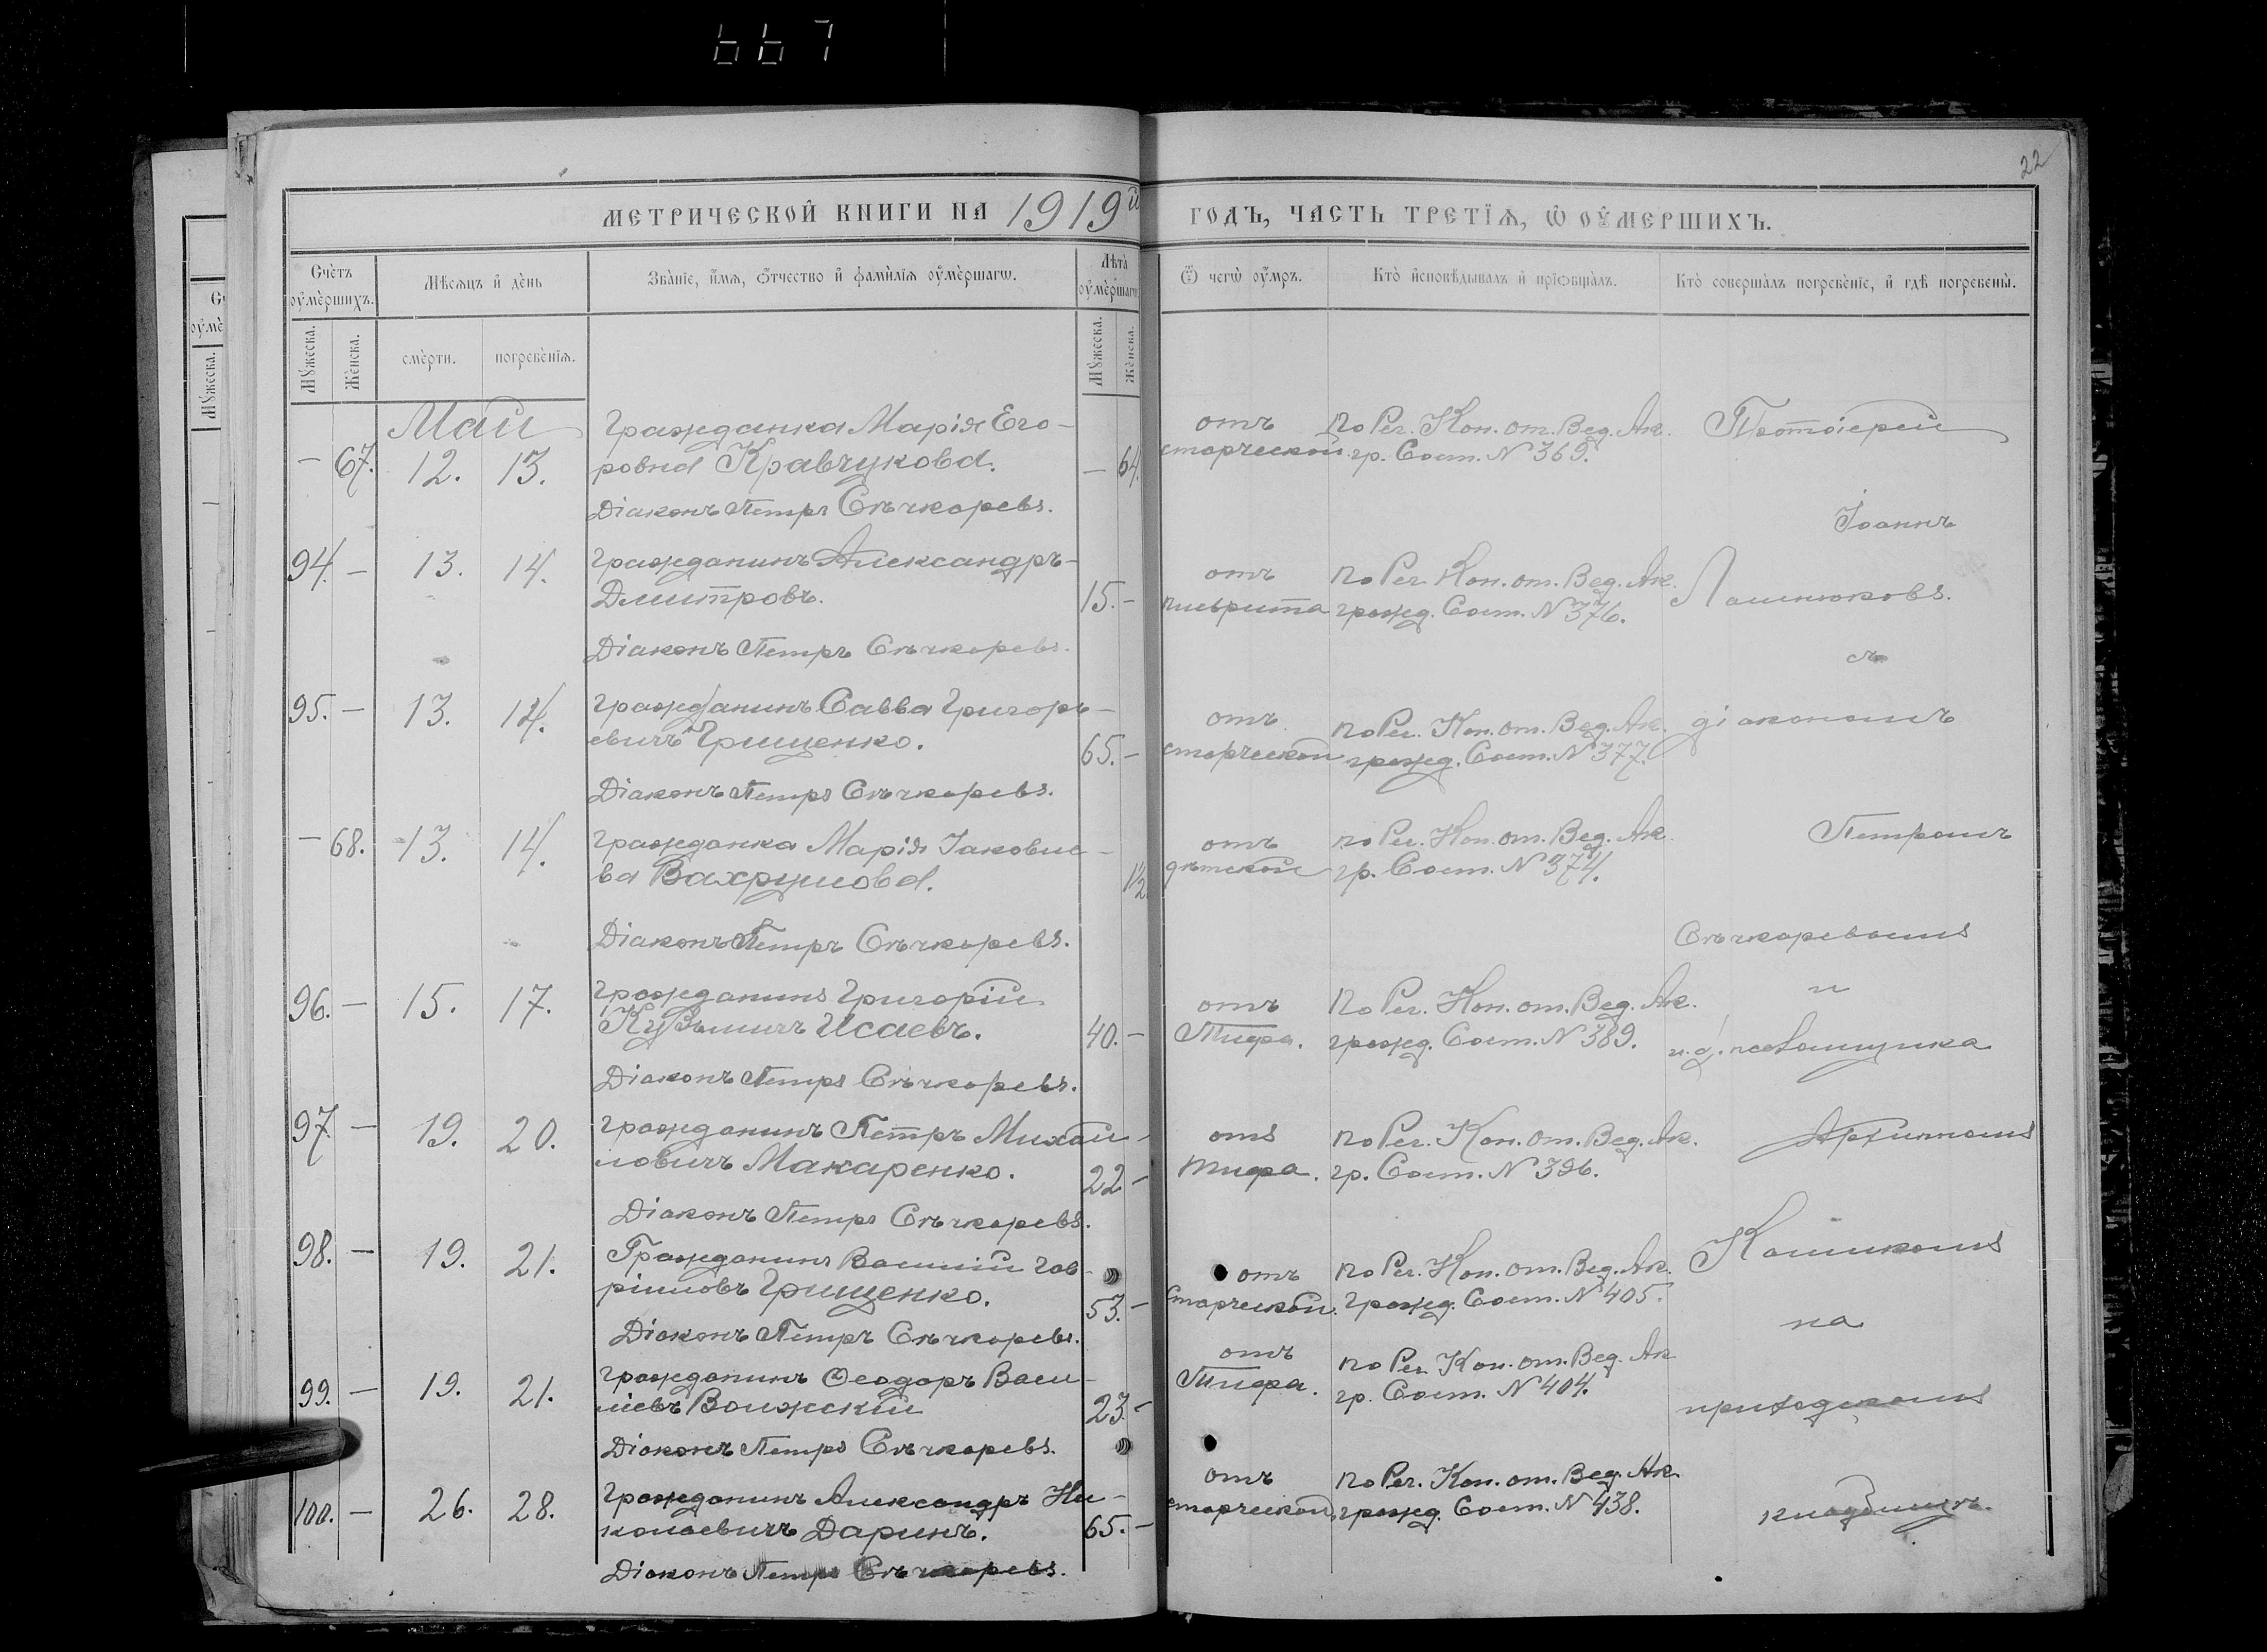 667
22
МЕТРИЧЕСКОЙ КНИГИ НА 1919й ГОДЪ, ЧАСТЬ ТРЕТІЯ, Ѽ ОУМЕРШИХЪ.
Счетъ оумершихъ.
Мѣсяцъ и день
Званіе, имя, отчество и фамилія оумершагѡ.
Лѣта оумершагѡ
Ѿ чегѡ оумръ.
Кто исповѣдывалъ и пріобщалъ.
Кто совершалъ погребеніе, и гдѣ погребены.
Мужеска.
Женска.
смерти.
погребенія.
Мужеска.
Женска.
Май
— 67. 12. 13. Гражданка Марія Его-
ровна Кравчукова. — 64.
Діаконъ Петръ Снѣчкаревъ.
отъ старческой
по Рег. Кон. от. Вед. Ак.
гр. Сост. N 369.
94. — 13. 14. Гражданинъ Александръ
Дмитровъ. 15. —
Діаконъ Петръ Снѣчкаревъ.
отъ плеврита
по Рег. Кон. от. Вед. Ак.
гражд. Сост. N 376.
95. — 13. 14. Гражданинъ Савва Григорь-
евичъ Грищенко. 65. —
Діаконъ Петръ Снѣчкаревъ.
отъ старческой
по Рег. Кон. от. Вед. Ак.
гражд. Сост. N 377.
— 68. 13. 14. Гражданка Марія Іаковле-
ва Вахрушова. 1½
Діаконъ Петръ Снѣчкаревъ.
отъ дѣтской
по Рег. Кон. от. Вед. Ак.
гр. Сост. N 374.
96. — 15. 17. Гражданинъ Григорій
Кузьмичъ Исаевъ. 40. —
Діаконъ Петръ Снѣчкаревъ.
отъ Тифа.
по Рег. Кон. от. Вед. Ак.
гражд. Сост. N 389.
97 — 19. 20. Гражданинъ Петръ Михай-
ловичъ Макаренко. 22 —
Діаконъ Петръ Снѣчкаревъ.
отъ тифа.
по Рег. Кон. от. Вед. Ак.
гр. Сост. N 396.
98. — 19. 21. Гражданинъ Василій Гав-
ріиловъ Грищенко. 53. —
Діаконъ Петръ Снѣчкаревъ.
отъ старческой.
по Рег. Кон. от. Вед. Ак.
гражд. Сост. N 405.
99. — 19. 21. Гражданинъ Ѳеодоръ Васи-
ліевъ Волжскій 23. —
Діаконъ Петръ Снѣчкаревъ.
отъ Тифа.
по Рег. Кон. от. Вед. Ак
гр. Сост. N 404.
100. — 26. 28. Гражданинъ Александръ Ни-
колаевичъ Даринъ. 65. —
Діаконъ Петръ Снѣчкаревъ.
отъ старческой
по Рег. Кон. от. Вед. Ак.
гражд. Сост. N 438.
Протоіерей
Іоаннъ
Лашнюковъ.
съ
діакономъ
Петромъ
Снѣчкаревомъ
и
и. д. псаломщика
Кашикомъ
на
приходскомъ
кладбищѣ.